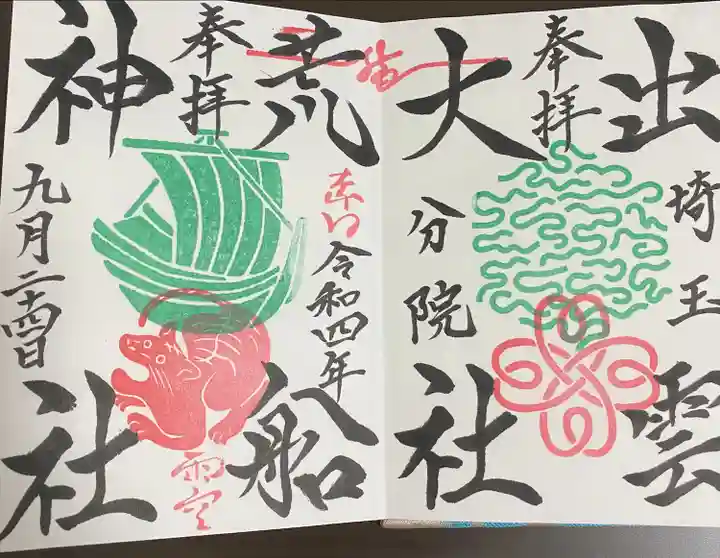 出雲
埼玉
奉拝
大社
分院
奉拝
荒船
令和四年
神社
九月二十四日
雨空